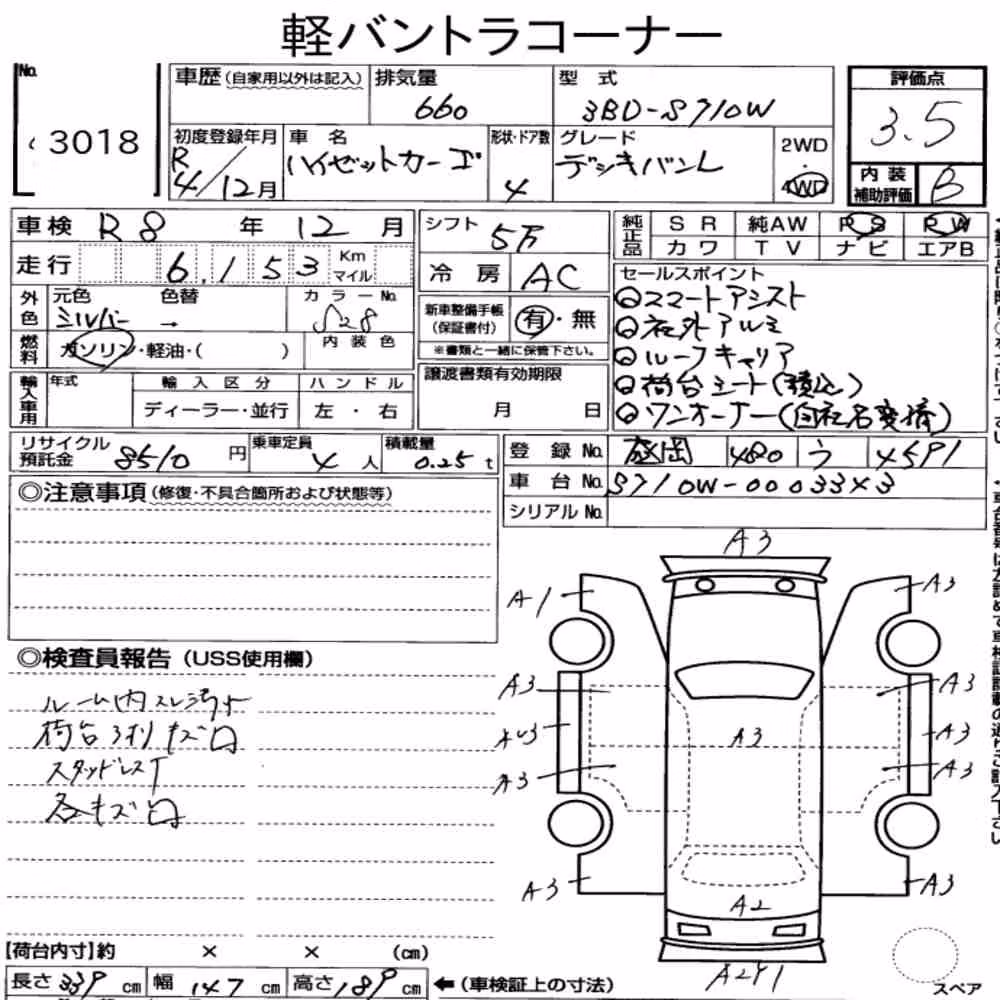 軽バントラコーナー
No. 3018
車歴(自家用以外は記入) 排気量 660 型式 3BD-S710W
評価点 3.5
初度登録年月 R4/12月 車名 ハイゼットカーゴ 形状・ドア数 4 グレード デッキバンL 2WD・4WD
内装補助評価 B
車検 R8年12月 シフト 5万
純正品 SR 純AW PS PW
カワ TV ナビ エアB
走行 6,153 Km マイル 冷房 AC
セールスポイント
スマートアシスト
社外アルミ
ルーフキャリア
荷台シート(積込)
ワンオーナー(自社名変済)
外色 元色 シルバー 色替 → カラーNo. S28
新車整備手帳(保証書付) 有・無
※書類と一緒に保管下さい。
燃料 ガソリン・軽油・( ) 内装色
譲渡書類有効期限 月 日
輸入車用 年式 輸入区分 ハンドル
ディーラー・並行 左・右
リサイクル預託金 8510円 乗車定員 4人 積載量 0.25t
登録No. 盛岡 480 う 4591
車台No. S710W-00033×3
シリアルNo.
◎注意事項(修復・不具合箇所および状態等)
◎検査員報告(USS使用欄)
荷台 キズ
スタッドレスT
各キズ
A3
A1 A3
A3 A3
A3 A3
A3 A3
A3 A3
A2
スペア
【荷台内寸】約 × × (cm)
長さ 339cm 幅 147cm 高さ 189cm ←(車検証上の寸法)